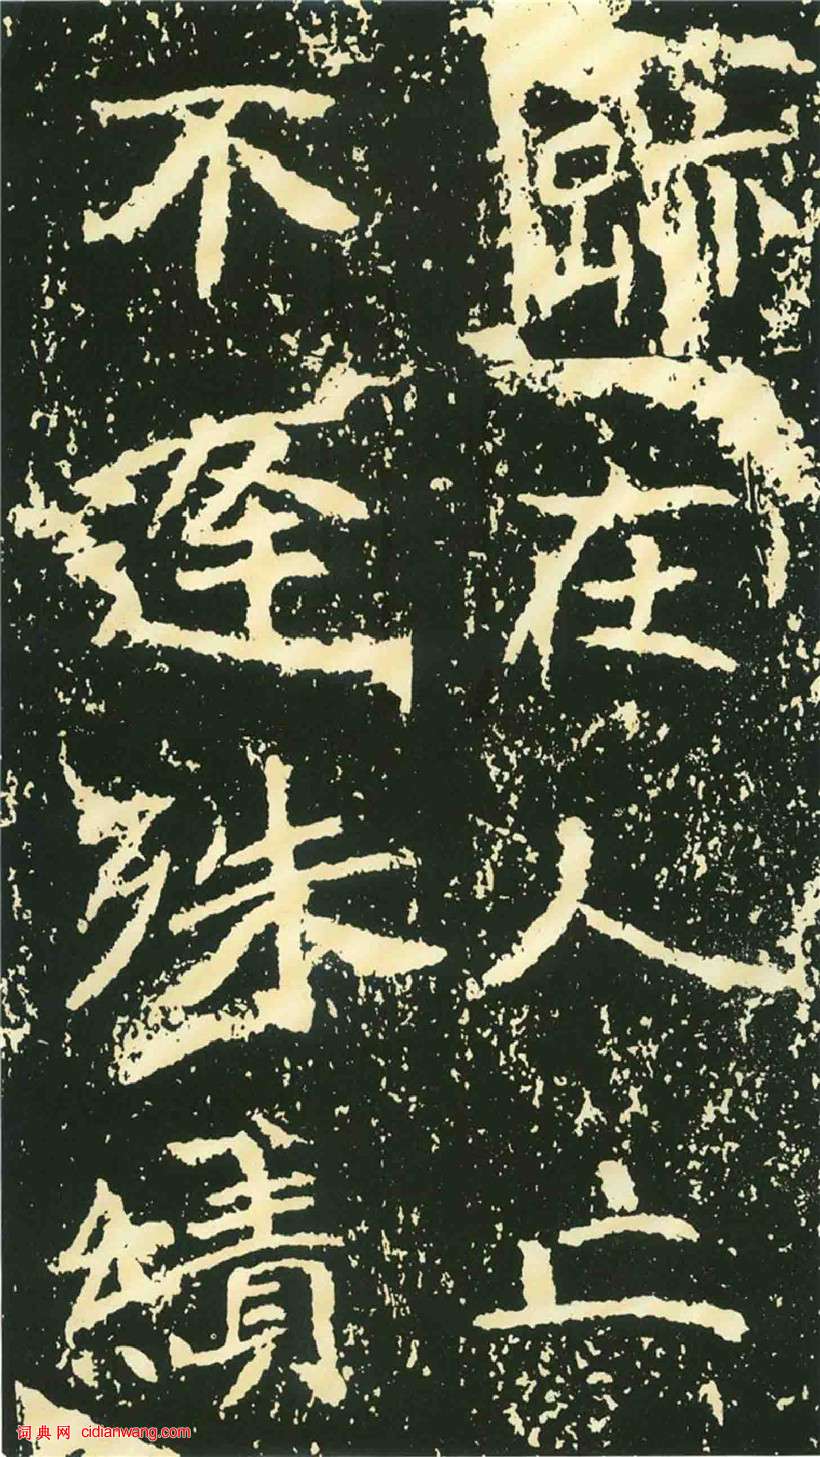 跡在人亡
不逢殊績
词典网 cidianwang.com